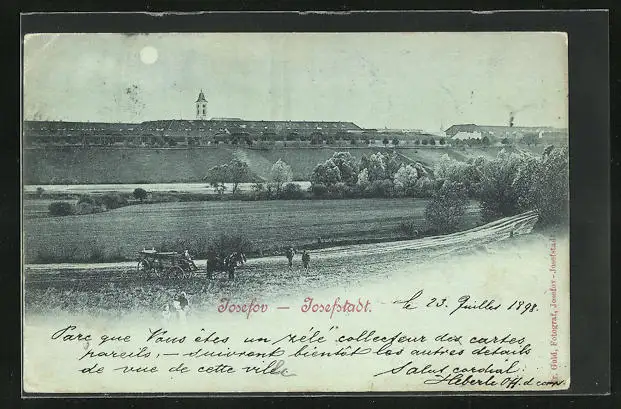 Josefov — Josefstadt.
le 23. Juilles 1898.
Parc que Vous êtes un zélé collecteur des cartes
pareils, — suivront bientôt les autres details
de vue de cette ville
Salut cordial
Heberle Off. d.
Gold, Fotograf, Josefov - Josefstadt